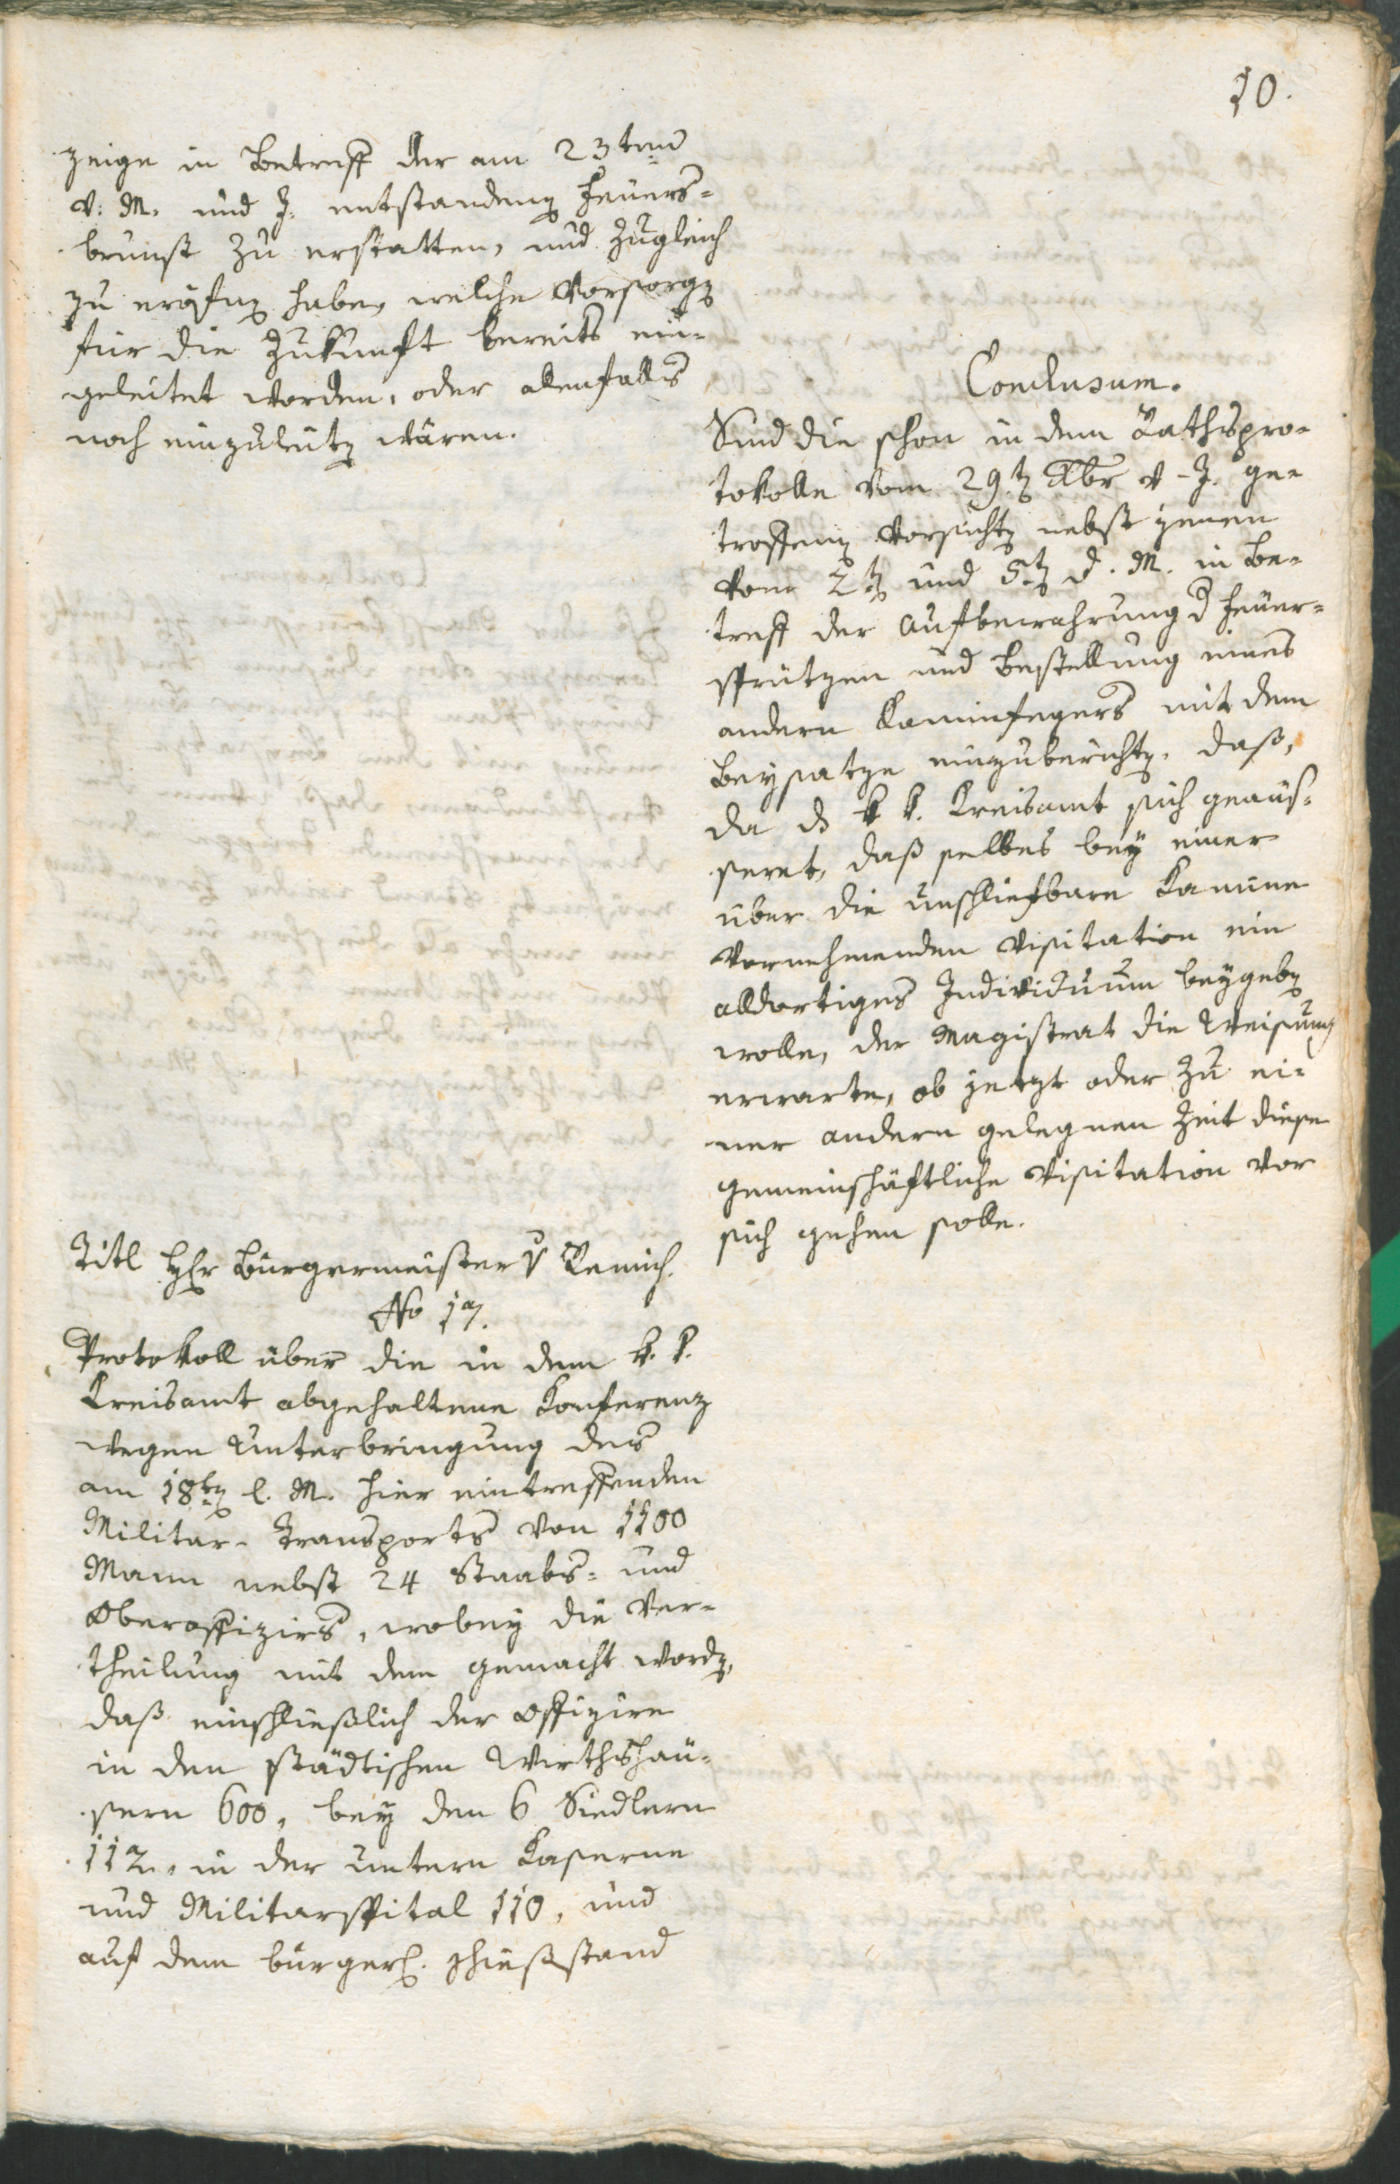 10.
zeige in Betreff der am 23ten
v: M. und J. entstandenen Feuers-
brunst zu erstatten, und zugleich
zu eröfnen habe, welche Vorsorgen
für die Zukunft bereits ein-
geleitet worden, oder allenfalls
noch einzuleiten wären.
Conclusum.
Sind die schon in dem Rathspro-
tokolle vom 29ten Xbr v. J. ge-
troffenen Vorsichten nebst jenen
vom 2ten und 5ten d. M. in Be-
treff der Aufbewahrung d Feuer-
spritzen und Bestellung eines
andern Kaminfegers mit dem
Beysatze einzuberichten, daß,
da d k k. Kreisamt sich geäus-
seret, daß selbes bey einer
über die unschliefbare Kamine
vornehmenden Visitation ein
alldortiges Individuum beygeben
wolle, der Magistrat die Weisung
erwarte, ob jetzt oder zu ei-
ner andern gelegnen Zeit diese
gemeinschäftliche Visitation vor
sich gehen solle.
Titl Hr Bürgermeister v Remich.
No 17.
Protokoll über die in dem k. k.
Kreisamt abgehaltene Konferenz
wegen Unterbringung des
am 18ten l. M. hier eintreffenden
Militar-Transports von 1100
Mann nebst 24 Staabs- und
Oberoffizirs, wobey die Ver-
theilung mit dem gemacht worden,
daß einschließlich der Offizire
in den städtischen Wirthshäu-
sern 600, bey den 6 Siedlern
112, in der untern Kaserne
und Militarspital 110, und
auf dem bürgerl. Schießstand